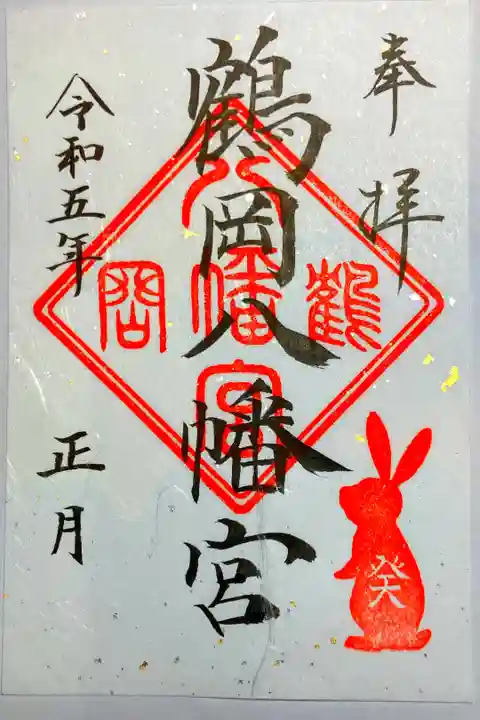 奉拝
鶴岡八幡宮
鶴
八幡宮
岡
癸
令和五年
正月